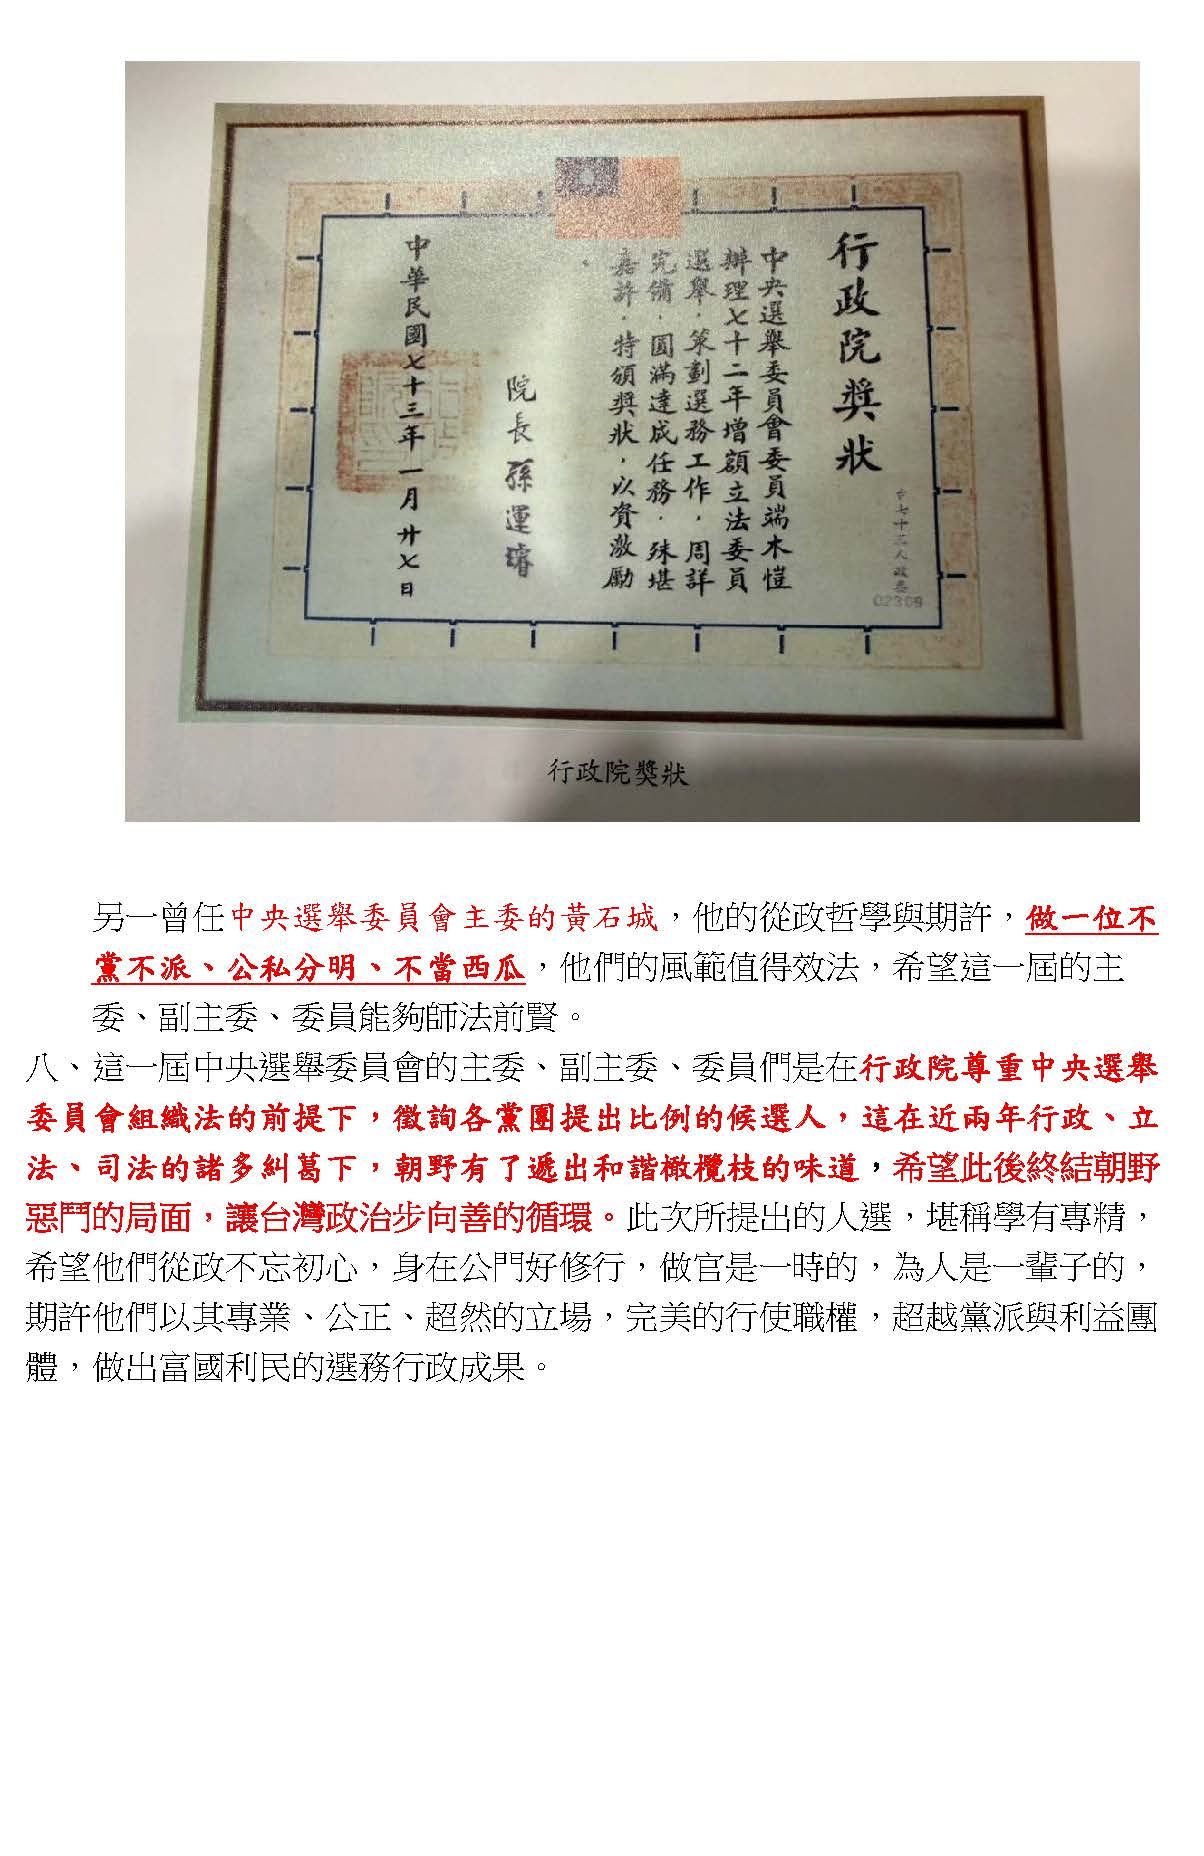 行政院獎狀
中央選舉委員會委員端木愷
辦理七十二年增額立法委員
選舉，策劃選務工作，周詳
完備，圓滿達成任務，殊堪
嘉許，特頒獎狀，以資激勵
。
院長 孫運璿
中華民國七十三年一月廿七日
02309
行政院獎狀
另一曾任中央選舉委員會主委的黃石城，他的從政哲學與期許，做一位不
黨不派、公私分明、不當西瓜，他們的風範值得效法，希望這一屆的主
委、副主委、委員能夠師法前賢。
八、這一屆中央選舉委員會的主委、副主委、委員們是在行政院尊重中央選舉
委員會組織法的前提下，徵詢各黨團提出比例的候選人，這在近兩年行政、立
法、司法的諸多糾葛下，朝野有了遞出和諧橄欖枝的味道，希望此後終結朝野
惡鬥的局面，讓台灣政治步向善的循環。此次所提出的人選，堪稱學有專精，
希望他們從政不忘初心，身在公門好修行，做官是一時的，為人是一輩子的，
期許他們以其專業、公正、超然的立場，完美的行使職權，超越黨派與利益團
體，做出富國利民的選務行政成果。